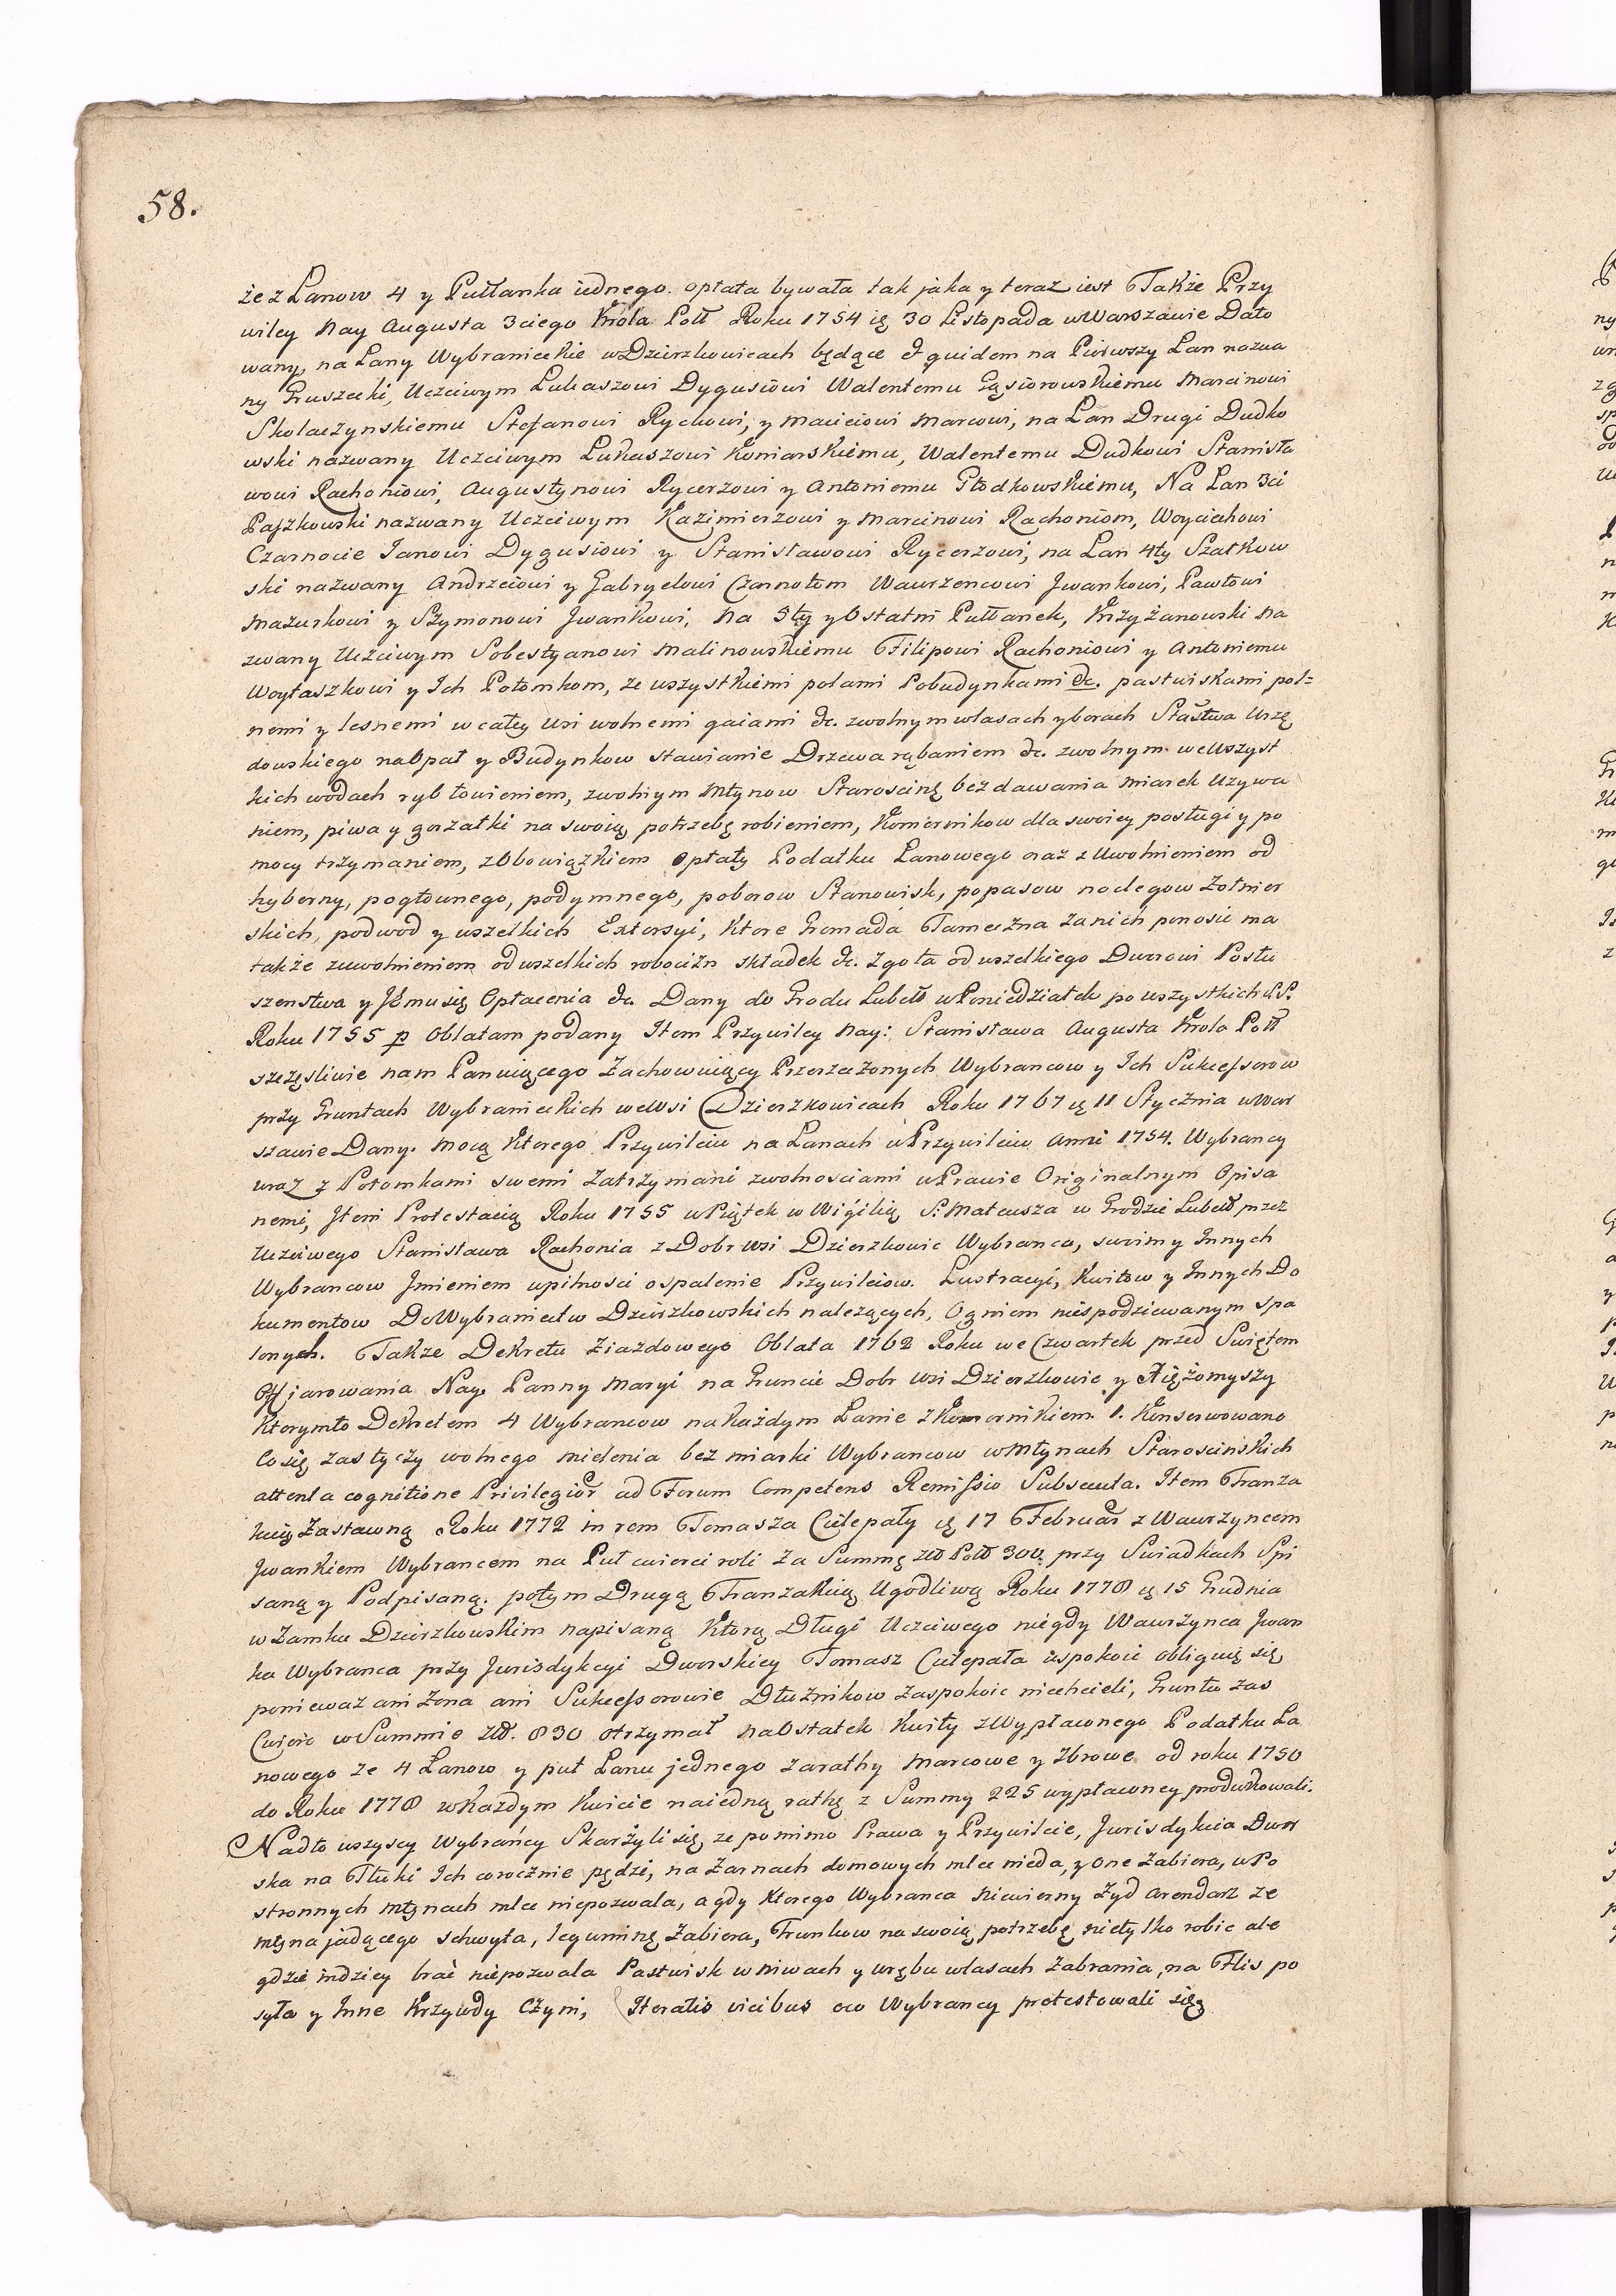 58.
że z Łanow 4 y Pułłanka iednego opłata bywała tak jaka y teraz iest Także Przy
wiley Nay Augusta 3ciego Króla Poll Roku 1754 ię 30 Listopada w Warszawie Dato
wany, na Lany Wybranieckie w Dzierzkowicach będące et quidem na Pierwszy Lan nazwa
ny Gruszecki, Uczciwym Lukaszowi Dygusiowi Walentemu Gąsiorowskiemu Marcinowi
Skolaczynskiemu Stefanowi Rychowi, y Macieiowi Marcowi, na Lan Drugi Dudko
wski nazwany Uczciwym Lukaszowi Koniarskiemu, Walentemu Dudkowi Stanisła
wowi Rachoniowi, Augustynowi Rycerzowi y Antoniemu Głodkowskiemu, Na Lan 3ci
Paszkowski nazwany Uczciwym Kazimierzowi y Marcinowi Rachoniom, Woyciechowi
Czarnocie Janowi Dygusiowi y Stanisławowi Rycerzowi, na Lan 4ty Szatkow
ski nazwany Andrzeiowi y Gabryelowi Czarnotom Wawrzencowi Jwankowi, Pawłowi
Mazurkowi y Szymonowi Jwankowi, Na 5ty y Ostatni Pułłanek, Krzyżanowski na
zwany Uczciwym Sobestyanowi Malinowskiemu Filipowi Rachoniowi y Antoniemu
Woytaszkowi y Ich Potomkom, ze wszystkiemi polami Pobudynkami &c. pastwiskami pol=
nemi y lesnemi w całey wsi wolnemi gaiami &c. z wolnym w lasach y borach Stastwa Urzę
dowskiego na Opał y Budynkow stawianie Drzewa rąbaniem &c. z wolnym we wszyst
kich wodach ryb łowieniem, z wolnym Młynow Starościnę bez dawania miarek Uzywa
niem, piwa y gorzałki na swoią potrzebę robieniem, Komornikow dla swoiey posługi y po
mocy trzymaniem, z Obowiązkiem opłaty Podatku Lanowego oraz z Uwolnieniem od
hyberny, pogłownego, podymnego, poborow Stanowisk, popasow noclegow Żołnier
skich, podwod y wszelkich Extorsyi, Ktore Gromada Tameczna za nich ponosić ma
także z uwolnieniem od wszelkich robocizn składek &c. zgoła od wszelkiego Dworowi Posłu
szenstwa y Jemu się Opłacenia &c. Dany do Grodu Lubell w Poniedziałek po wszystkich S.S.
Roku 1755 p Oblatam podany Item Przywiley Nay: Stanisława Augusta Krola Poll
szczęsliwie nam Panuiącego Zachowuiący Przerzeczonych Wybrancow y Ich Sukcessorow
przy Gruntach Wybranieckich we Wsi Dzierzkowicach Roku 1767 ię 11 Stycznia w War
szawie Dany. Mocą Ktorego Przywileiu na Lanach w Przywileiu Anni 1754. Wybrancy
wraz z Potomkami swemi Zatrzymani z wolnosciami w Prawie Originalnym Opisa
nemi, Item Protestacią Roku 1755 w Piątek w Wigilią S: Mateusza w Grodzie Lubell przez
Uczciwego Stanisława Rachonia z Dobr wsi Dzierzkowic Wybranca, swoim y Innych
Wybrancow Jmieniem w pilnosci o spalenie Przywileiow. Lustracyi, Kwitow y Innych Do
kumentow Do Wybraniectw Dzierzkowskich nalezących, Ogniem niespodziewanym spa
lonych. Także Dekretu Ziazdowego Oblata 1762 Roku we Czwartek przed Swiętem
Offiarowania Nay. Panny Maryi na Gruncie Dobr wsi Dzierzkowic y Xiężomyszy
Ktorymto Dekretem 4 Wybrancow na każdym Lanie z Komornikiem 1. Konserwowano
Co się zas tyczy wolnego mielenia bez miarki Wybrancow w Młynach Starościńskich
attenta cognitione Privilegior ad Forum Competens Remissio Subsecuta. Item Tranza
kcią Zastawną Roku 1772 in rem Tomasza Culepały ię 17 Februar z Wawrzyncem
Jwankiem Wybrancem na Puł cwierci roli Za Summę Zł Poll 300. przy Swiadkach Spi
saną y Podpisaną. potym Drugą Tranzakcią Ugodliwą Roku 1778 ię 15 Grudnia
w Zamku Dzierzkowskim napisaną Ktorą Długi Uczciwego niegdy Wawrzynca Jwan
ka Wybranca przy Jurisdykcyi Dworskiey Tomasz Culepała uspokoić obliguię się
ponieważ ani Zona ani Sukcessorowie Dłużnikow zaspokoić niechcieli, Gruntu zas
Cwierć w Summie Zł. 830 otrzymał na Ostatek Kwity z Wypłaconego Podatku La
nowego ze 4 Lanow y puł Lanu jednego za rathy Marcowe y 7browe od roku 1750
do Roku 1778 w każdym Kwicie na iedną ratkę z Summy 225 wypłaconey produkowali.
Nadto wszyscy Wybrańcy Skarżyli się ze pomimo Prawa y Przywileie, Jurisdykcia Dwor
ska na Tłuki Ich corocznie pędzi, na Zarnach domowych mlec nieda, y one Zabiera, w Po
stronnych Młynach mlec niepozwala, a gdy Ktorego Wybranca niewierny Zyd Arendarz ze
Młyna jadącego schwyta, leguminę Zabiera, Trunkow na swoią potrzebę nietylko robic ale
gdzie indziey brać niepozwala Pastwisk w niwach y wrębu w lasach Zabrania, na Flis po
syła y Inne Krzywdy Czyni, Iteratis vicibus oco Wybrancy protestowali się